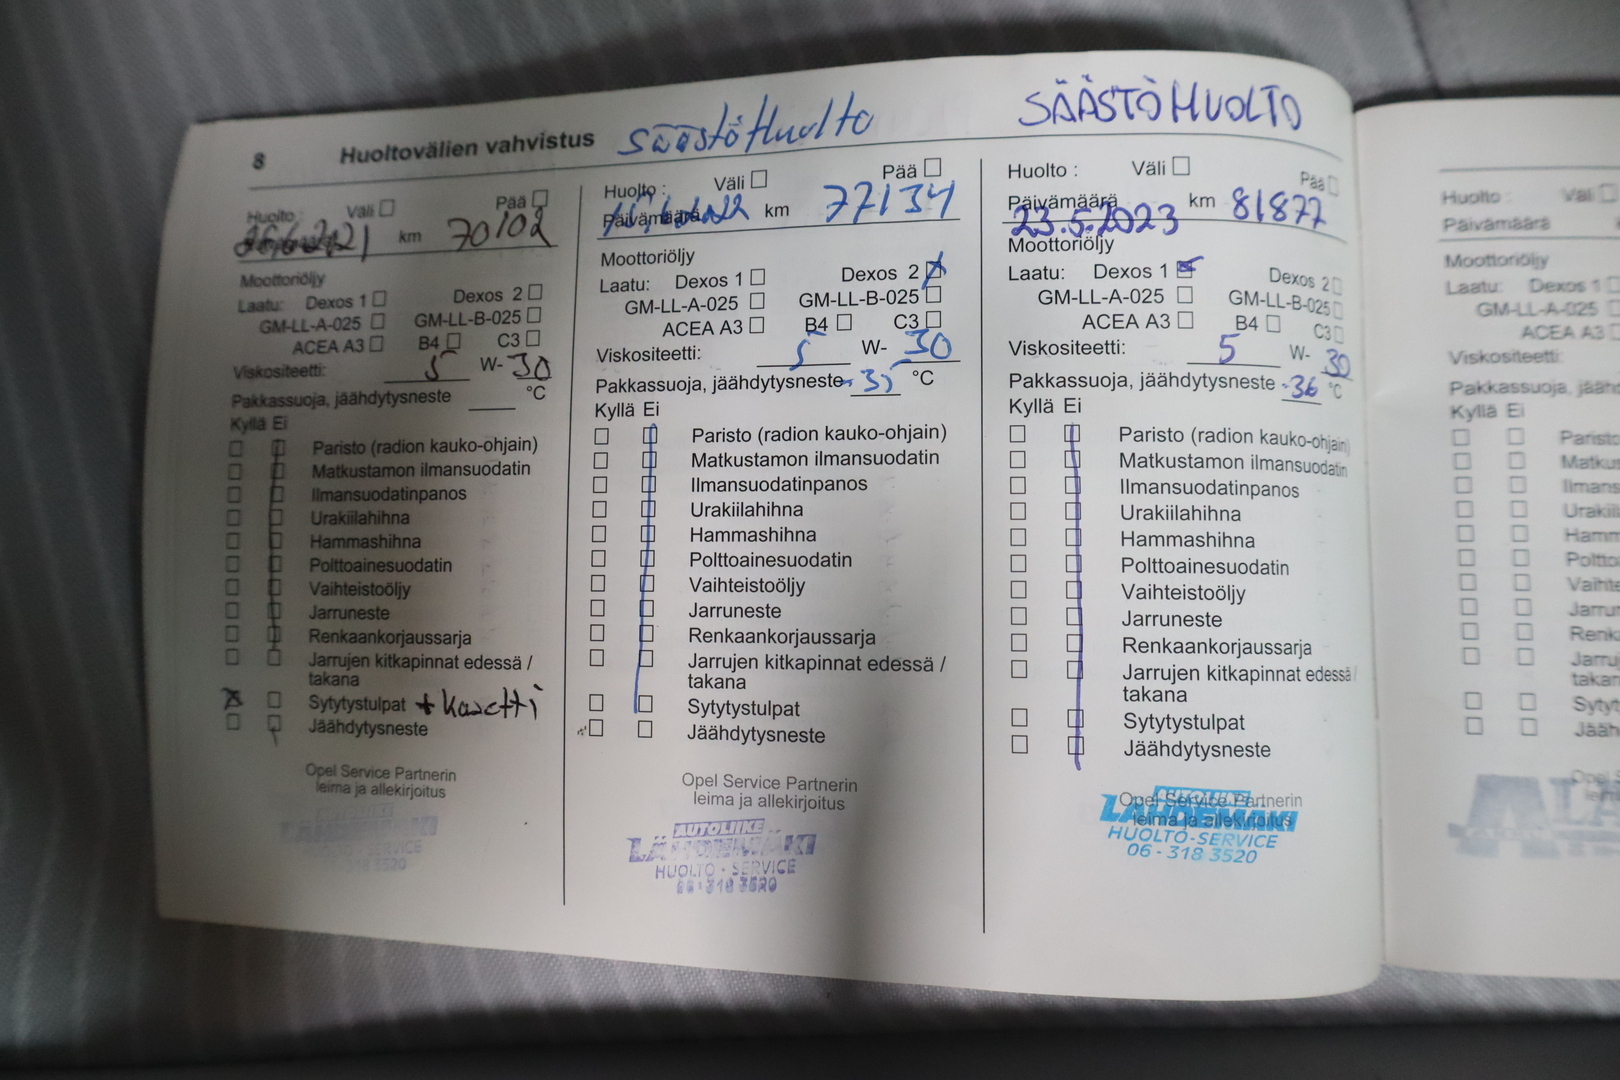 8 Huoltovälien vahvistus SäästöHuolto SÄÄSTÖHUOLTO
Huolto : Väli Pää
km 70102
Moottoriöljy
Laatu: Dexos 1 Dexos 2
GM-LL-A-025 GM-LL-B-025
ACEA A3 B4 C3
Viskositeetti: 5 W- 30
Pakkassuoja, jäähdytysneste °C
Kyllä Ei
Paristo (radion kauko-ohjain)
Matkustamon ilmansuodatin
Ilmansuodatinpanos
Urakiilahihna
Hammashihna
Polttoainesuodatin
Vaihteistoöljy
Jarruneste
Renkaankorjaussarja
Jarrujen kitkapinnat edessä /
takana
Sytytystulpat + kasetti
Jäähdytysneste
Opel Service Partnerin
leima ja allekirjoitus
Huolto : Väli Pää
Päivämäärä km 77134
Moottoriöljy
Laatu: Dexos 1 Dexos 2
GM-LL-A-025 GM-LL-B-025
ACEA A3 B4 C3
Viskositeetti: 5 W- 30
Pakkassuoja, jäähdytysneste -35 °C
Kyllä Ei
Paristo (radion kauko-ohjain)
Matkustamon ilmansuodatin
Ilmansuodatinpanos
Urakiilahihna
Hammashihna
Polttoainesuodatin
Vaihteistoöljy
Jarruneste
Renkaankorjaussarja
Jarrujen kitkapinnat edessä /
takana
Sytytystulpat
Jäähdytysneste
Opel Service Partnerin
leima ja allekirjoitus
AUTOLIIKE
LÄHDEMÄKI
HUOLTO - SERVICE
06 - 318 3520
Huolto : Väli Pää
Päivämäärä 23.5.2023 km 81877
Moottoriöljy
Laatu: Dexos 1 Dexos 2
GM-LL-A-025 GM-LL-B-025
ACEA A3 B4 C3
Viskositeetti: 5 W- 30
Pakkassuoja, jäähdytysneste -36 °C
Kyllä Ei
Paristo (radion kauko-ohjain)
Matkustamon ilmansuodatin
Ilmansuodatinpanos
Urakiilahihna
Hammashihna
Polttoainesuodatin
Vaihteistoöljy
Jarruneste
Renkaankorjaussarja
Jarrujen kitkapinnat edessä /
takana
Sytytystulpat
Jäähdytysneste
Opel Service Partnerin
leima ja allekirjoitus
AUTOLIIKE
LÄHDEMÄKI
HUOLTO-SERVICE
06 - 318 3520
Huolto : Väli
Päivämäärä
Moottoriöljy
Laatu: Dexos 1
GM-LL-A-025
ACEA A3
Viskositeetti:
Pakkassuoja, jäähd
Kyllä Ei